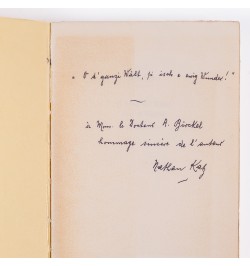 " O d'ganzi Wält, si isch e ewig Wunder! "
à Mons. le Docteur A. Bürckel
hommage sincère de l'auteur
Nathan Katz